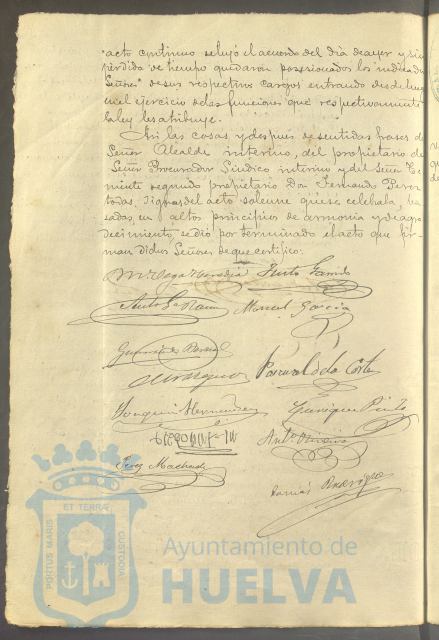 acto continuo se leyó el acuerdo del dia de ayer y sin
pérdida de tiempo quedaron posesionados los indicados
Señores de sus respectivos cargos entrando desde luego
en el ejercicio de las funciones que respectivamente
la ley les atribuye.
Asi las cosas y despues de sentidas frases del
Señor Alcalde interino, del propietario del
Señor Procurador Síndico interino y del Señor Te
niente segundo propietario Don Fernando
todas, dignas del acto solemne que se celebraba, ba
sadas en altos principios de armonia y de agra
decimiento se dió por terminado el acto que fir
man dichos Señores de que certifico.
Justo Garrido
Manuel García
Pascual de la Corte
Joaquin Hernandez
Enrique Pinto
Anto
José Machado
Rodriguez
PORTUS MARIS ET TERRAE CUSTODIA
Ayuntamiento de
HUELVA